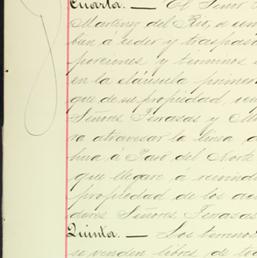 Cuarta. — El Señor
Martinez del Rio, se
ban á ceder y traspasa
porciones y terrenos
en la cláusula primer
que de su propiedad,
Señores Terrazas y M
ra atravesar la linea
hua á Paso del Norte
que llegare á
propiedad de los
dares Señores Terrazas
Quinta. — Los terrenos
se venden libres de to